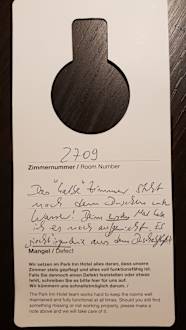 2709
Zimmernummer / Room Number
Das "halbe" Zimmer steht
nach dem Duschen unter
Wasser! Beim Mal habe
ich es noch aufgewischt. Es
aus dem
Mangel / Defect
Wir setzen im Park Inn Hotel alles daran, dass unsere
Zimmer stets gepflegt und alles voll funktionsfähig ist.
Falls Sie dennoch einen Defekt feststellen oder etwas
fehlt, schreiben Sie es bitte hier für uns auf.
Wir kümmern uns schnellstmöglich darum.
The Park Inn Hotel team works hard to keep the rooms well
maintained and fully functional at all times. Should you still find
something missing or not working properly, please make a
note above and we will take care of it.